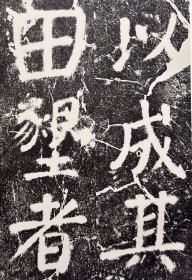 以成其
田墾者